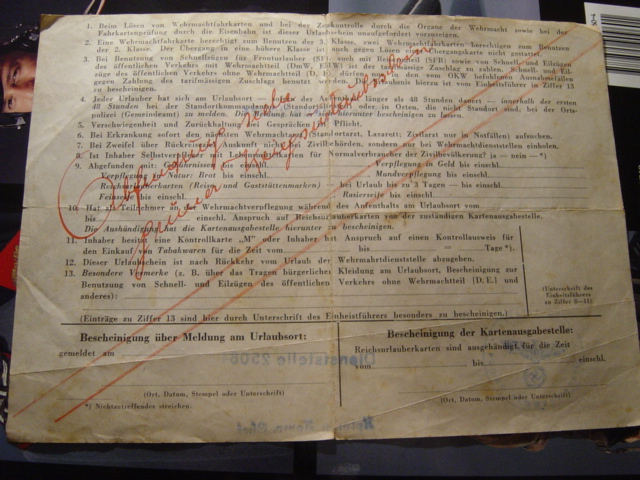 1. Beim Lösen von Wehrmachtfahrkarten und bei der Zugkontrolle durch die Organe der Wehrmacht sowie bei der
Fahrkartenprüfung durch die Eisenbahn ist dieser Urlaubsschein unaufgefordert vorzuzeigen.
2. Eine Wehrmachtfahrkarte berechtigt zum Benutzen der 3. Klasse, zwei Wehrmachtfahrkarten berechtigen zum Benutzen
der 2. Klasse. Der Übergang in eine höhere Klasse ist auch gegen Lösen von Übergangskarte nicht gestattet.
3. Bei Benutzung von Schnellzügen für Fronturlauber (SF) auch mit Reiseteil (SFR) sowie von Schnell- und Eilzügen
des öffentlichen Verkehrs mit Wehrmachtteil ist der tarifmäßige Zuschlag zu zahlen. Schnell- und Eil-
züge des öffentlichen Verkehrs ohne Wehrmachtteil (D, E) dürfen in den vom OKW befohlenen Ausnahmefällen
gegen Zahlung des tarifmäßigen Zuschlags benutzt werden. Die Erlaubnis hierzu ist vom Einheitsführer in Ziffer 13
zu bescheinigen.
4. Jeder Urlauber hat sich am Urlaubsort — bei der Aufenthalt länger als 48 Stunden dauert — innerhalb der ersten
48 Stunden bei der Standortkommandantur (Standortältesten) oder in Orten, die nicht Standort sind, bei der Orts-
polizei (Gemeindeamt) zu melden. Die Meldung hat er sich hierunter bescheinigen zu lassen.
5. Verschwiegenheit und Zurückhaltung bei Gesprächen ist Pflicht.
6. Bei Erkrankung sofort den nächsten Wehrmachtarzt (Standortarzt, Lazarett; Zivilarzt nur in Notfällen) aufsuchen.
7. Bei Zweifel über Rückreise Auskunft nicht bei Zivilbehörden, sondern nur bei Wehrmachtdienststellen einholen.
8. Ist Inhaber Selbstverpfleger mit Lebensmittelkarten für Normalverbraucher der Zivilbevölkerung? ja — nein — *)
9. Abgefunden mit: Gebührnissen bis einschl. Verpflegung in Geld bis einschl.
Verpflegung in Natur: Brot bis einschl. Mundverpflegung bis einschl.
Reichsurlauberkarten (Reise- und Gaststättenmarken) bei Urlaub bis zu 3 Tagen — bis einschl.
Feinseife bis einschl. Rasierseife bis einschl.
10. Hat als Teilnehmer an der Wehrmachtverpflegung während des Aufenthalts am Urlaubsort vom
bis einschl. Anspruch auf Reichsurlauberkarten von der zuständigen Kartenausgabestelle.
Die Aushändigung hat die Kartenausgabestelle hierunter zu bescheinigen.
11. Inhaber besitzt eine Kontrollkarte „M“ oder Inhaber hat Anspruch auf einen Kontrollausweis für
den Einkauf von Tabakwaren für die Zeit vom bis = Tage *).
12. Dieser Urlaubsschein ist nach Rückkehr vom Urlaub der Wehrmachtdienststelle abzugeben.
13. Besondere Vermerke (z. B. über das Tragen bürgerlicher Kleidung am Urlaubsort, Bescheinigung zur
Benutzung von Schnell- und Eilzügen des öffentlichen Verkehrs ohne Wehrmachtteil [D. E.] und
anderes):
(Unterschrift des
Einheitsführers
zu Ziffer 8—11)
(Einträge zu Ziffer 13 sind hier durch Unterschrift des Einheitsführers besonders zu bescheinigen.)
Bescheinigung über Meldung am Urlaubsort:
gemeldet am
(Ort, Datum, Stempel oder Unterschrift)
*) Nichtzutreffendes streichen.
Bescheinigung der Kartenausgabestelle:
Reichsurlauberkarten sind ausgehändigt für die Zeit
vom bis einschl.
(Ort, Datum, Stempel oder Unterschrift)
Dienststelle 2506